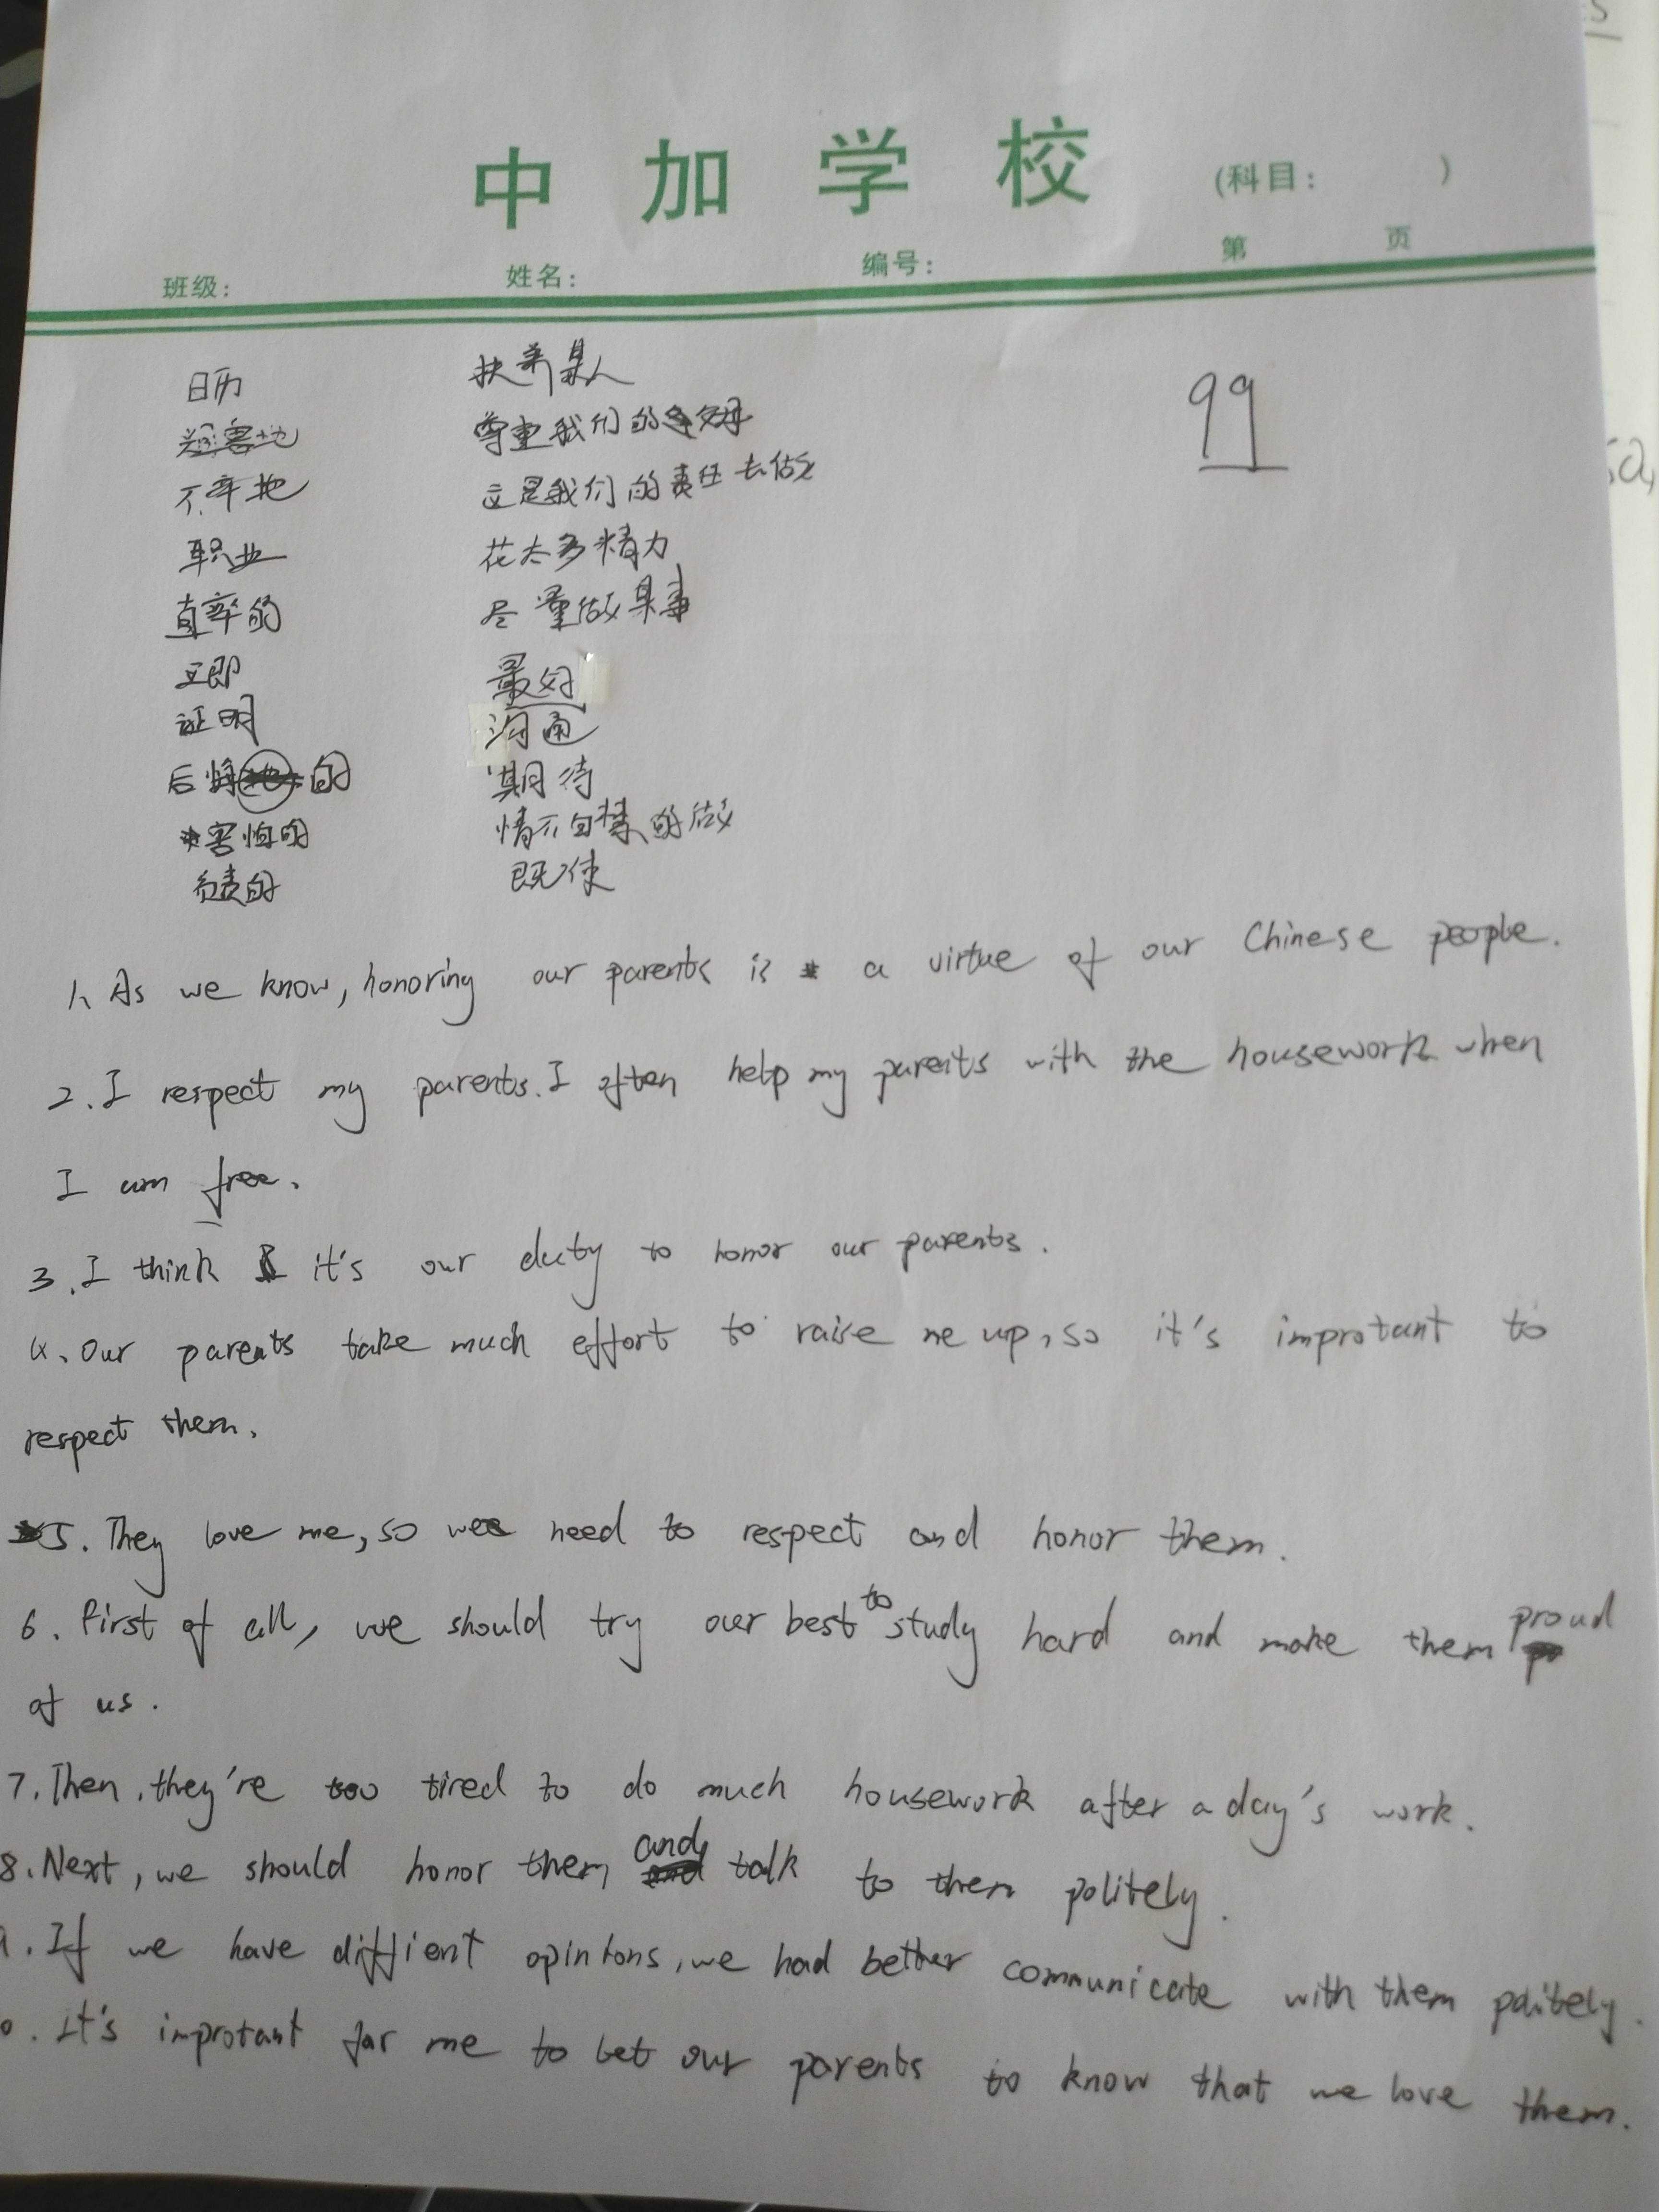 中加学校 (科目: )
班级: 姓名: 编号: 第 页
99
日历 扶养某人
尊重我们的父母
不幸地 这是我们的责任去做
职业 花太多精力
直率的 尽量做某事
立即 最好
证明 沟通
后悔的 期待
害怕的 情不自禁的做
负责的 既使
1. As we know, honoring our parents is a virtue of our Chinese people.
2. I respect my parents. I often help my parents with the housework when
I am free.
3. I think it's our duty to honor our parents.
4. Our parents take much effort to raise me up, so it's improtant to
respect them.
5. They love me, so we need to respect and honor them.
6. First of all, we should try our best to study hard and make them proud
of us.
7. Then, they're too tired to do much housework after a day's work.
8. Next, we should honor them and talk to them politely.
9. If we have diffient opinions, we had better communicate with them politely.
0. It's improtant for me to let our parents to know that we love them.